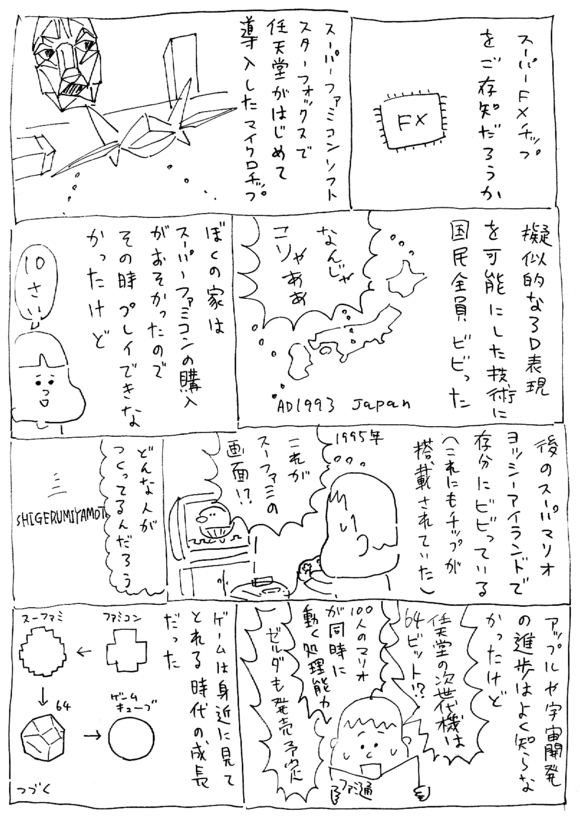 スーパーFXチップ
をご存知だろうか
FX
スーパーファミコンソフト
スターフォックスで
任天堂がはじめて
導入したマイクロチップ
擬似的な3D表現
を可能にした技術に
国民全員ビビった
なんじゃ
コリャああ
AD1993 Japan
ぼくの家は
スーパーファミコンの購入
がおそかったので
その時プレイできな
かったけど
10さい
後のスーパーマリオ
ヨッシーアイランドで
存分にビビっている
(これにもチップが
搭載されていた)
1995年
これが
スーファミの
画面!?
どんな人が
つくってるんだろう
三
SHIGERUMIYAMOT
アップルや宇宙開発
の進歩はよく知らな
かったけど
任天堂の次世代機は
64ビット!?
100人のマリオ
が同時に
動く処理能力
ゼルダも発売予定
ファミ通
ゲームは身近に見て
とれる時代の成長
だった
ファミコン
スーファミ
64
ゲーム
キューブ
つづく